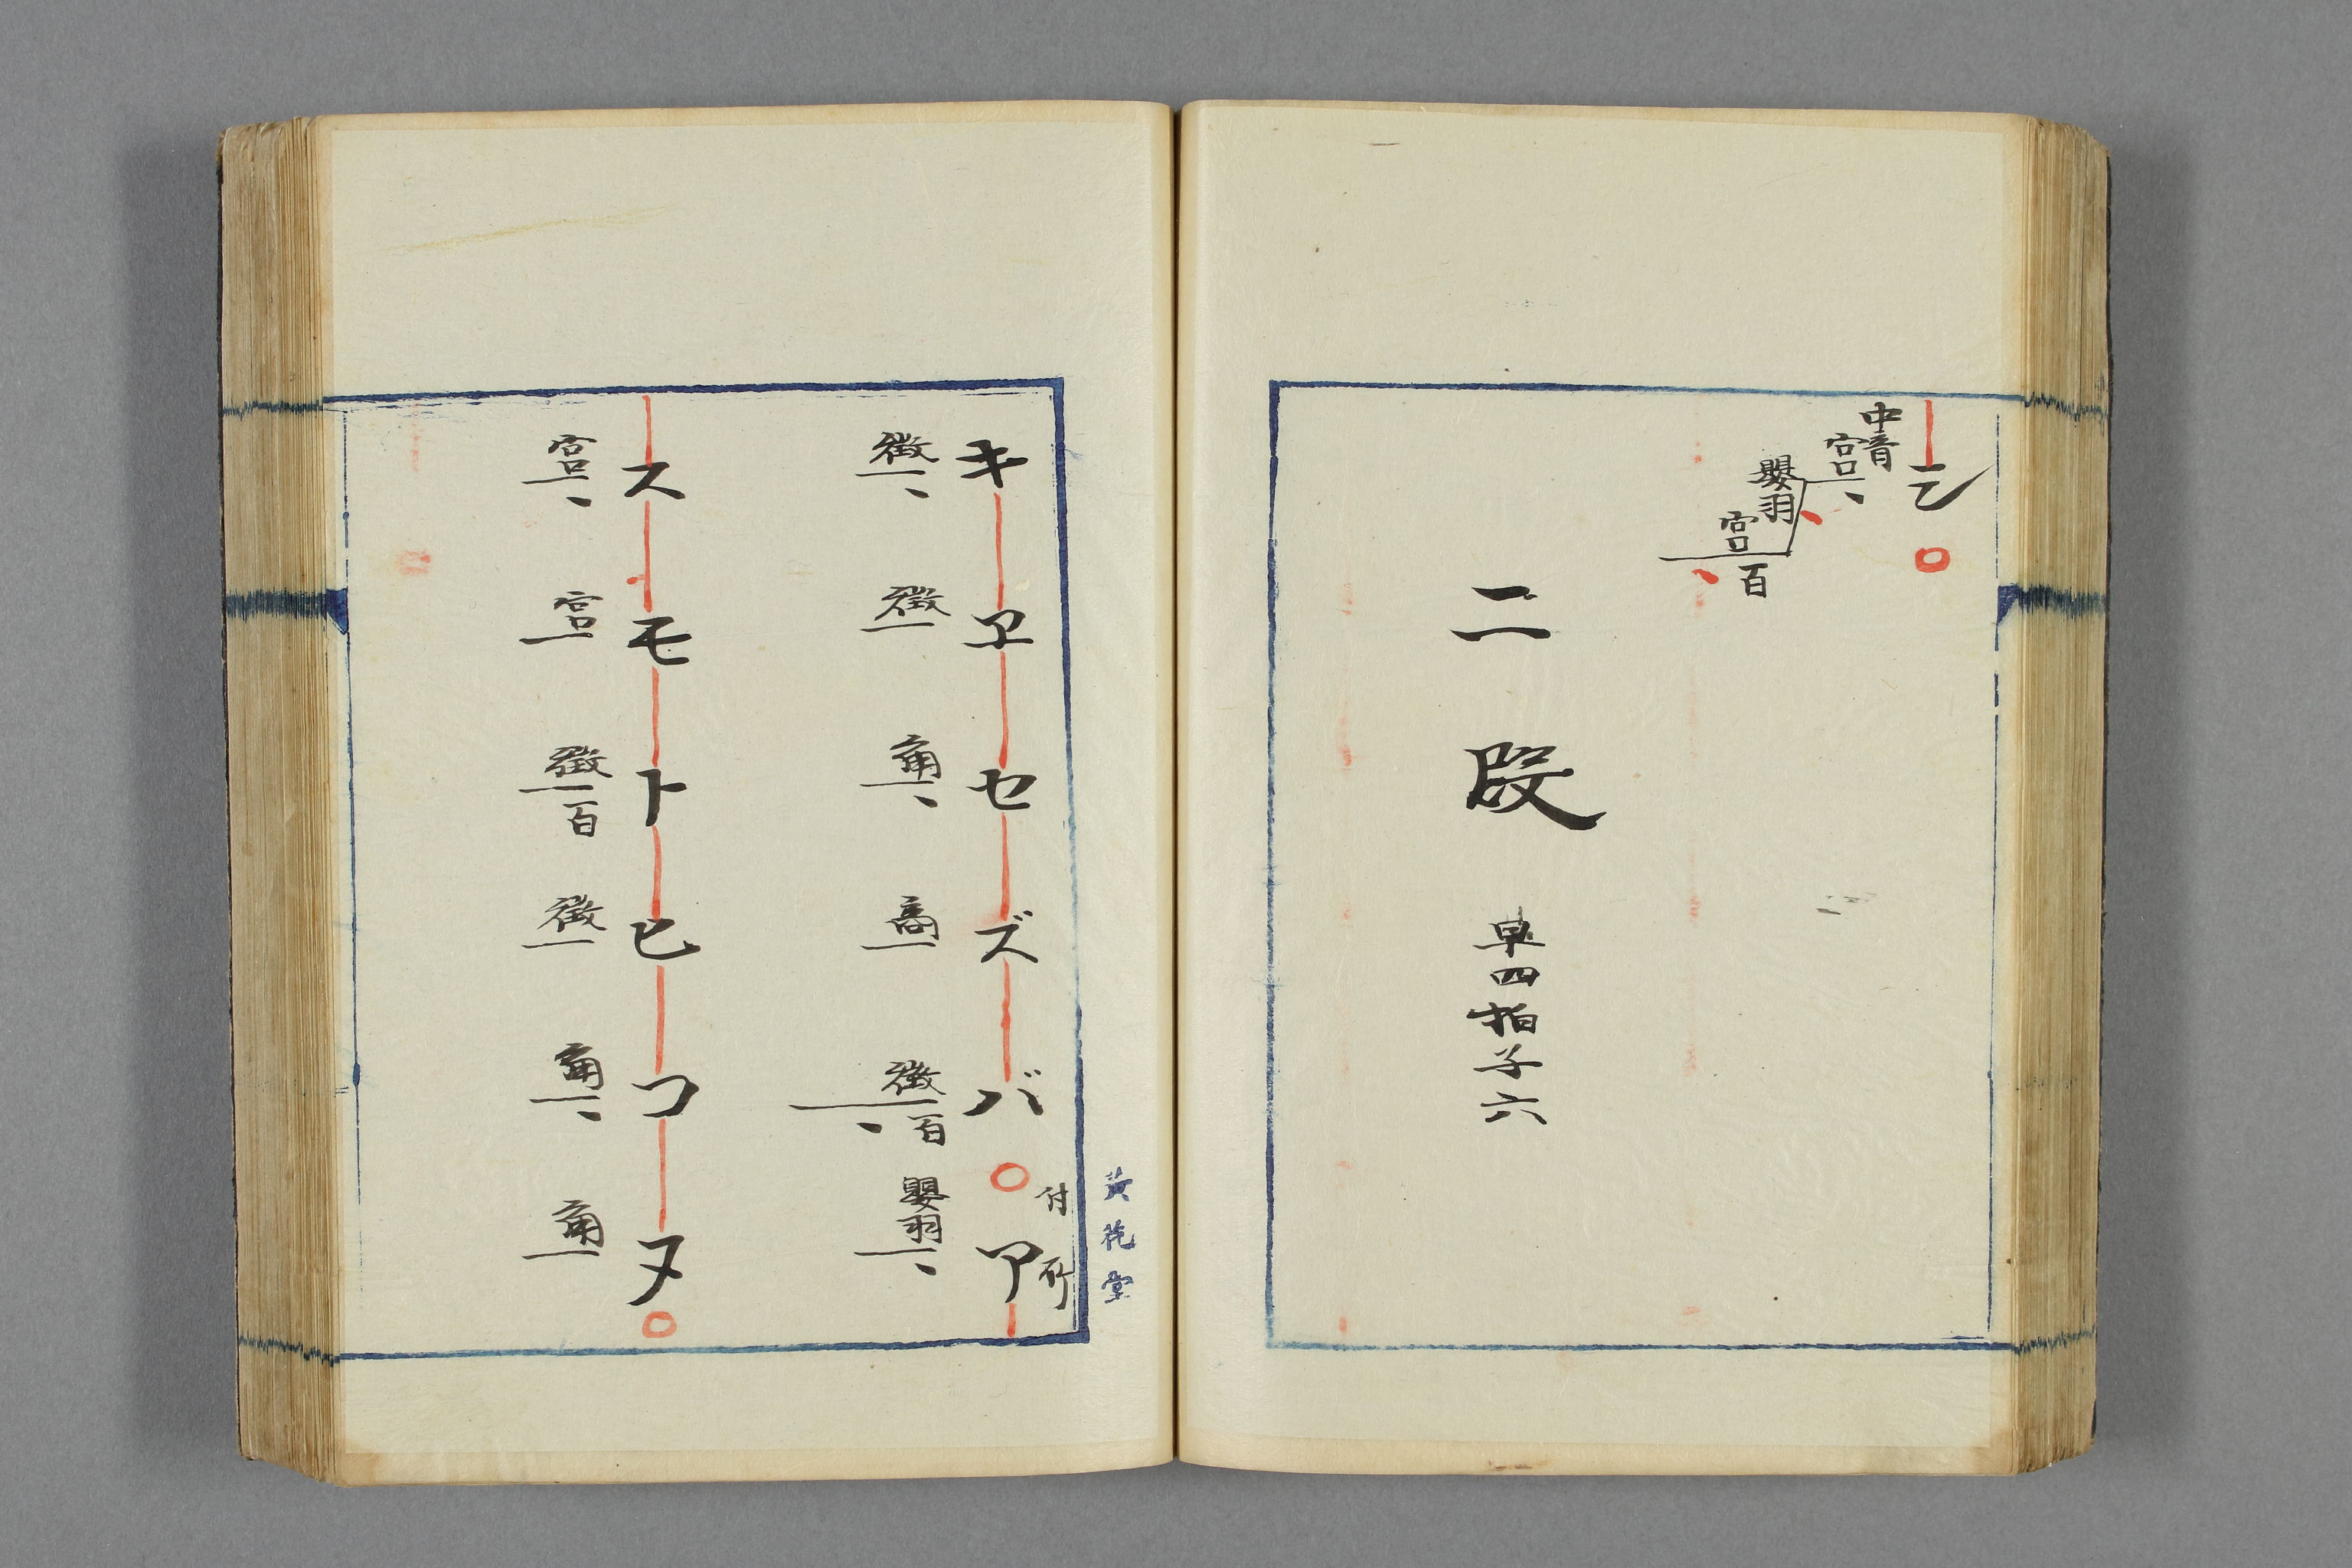 中音
宮
嬰羽
宮百
二段 早四拍子六
黄花堂
付所
キヱセズバ○ア
徴 徴 角 商 徴百 嬰羽
スモトヒコヌ○
宮 宮 徴百 徴 角 角